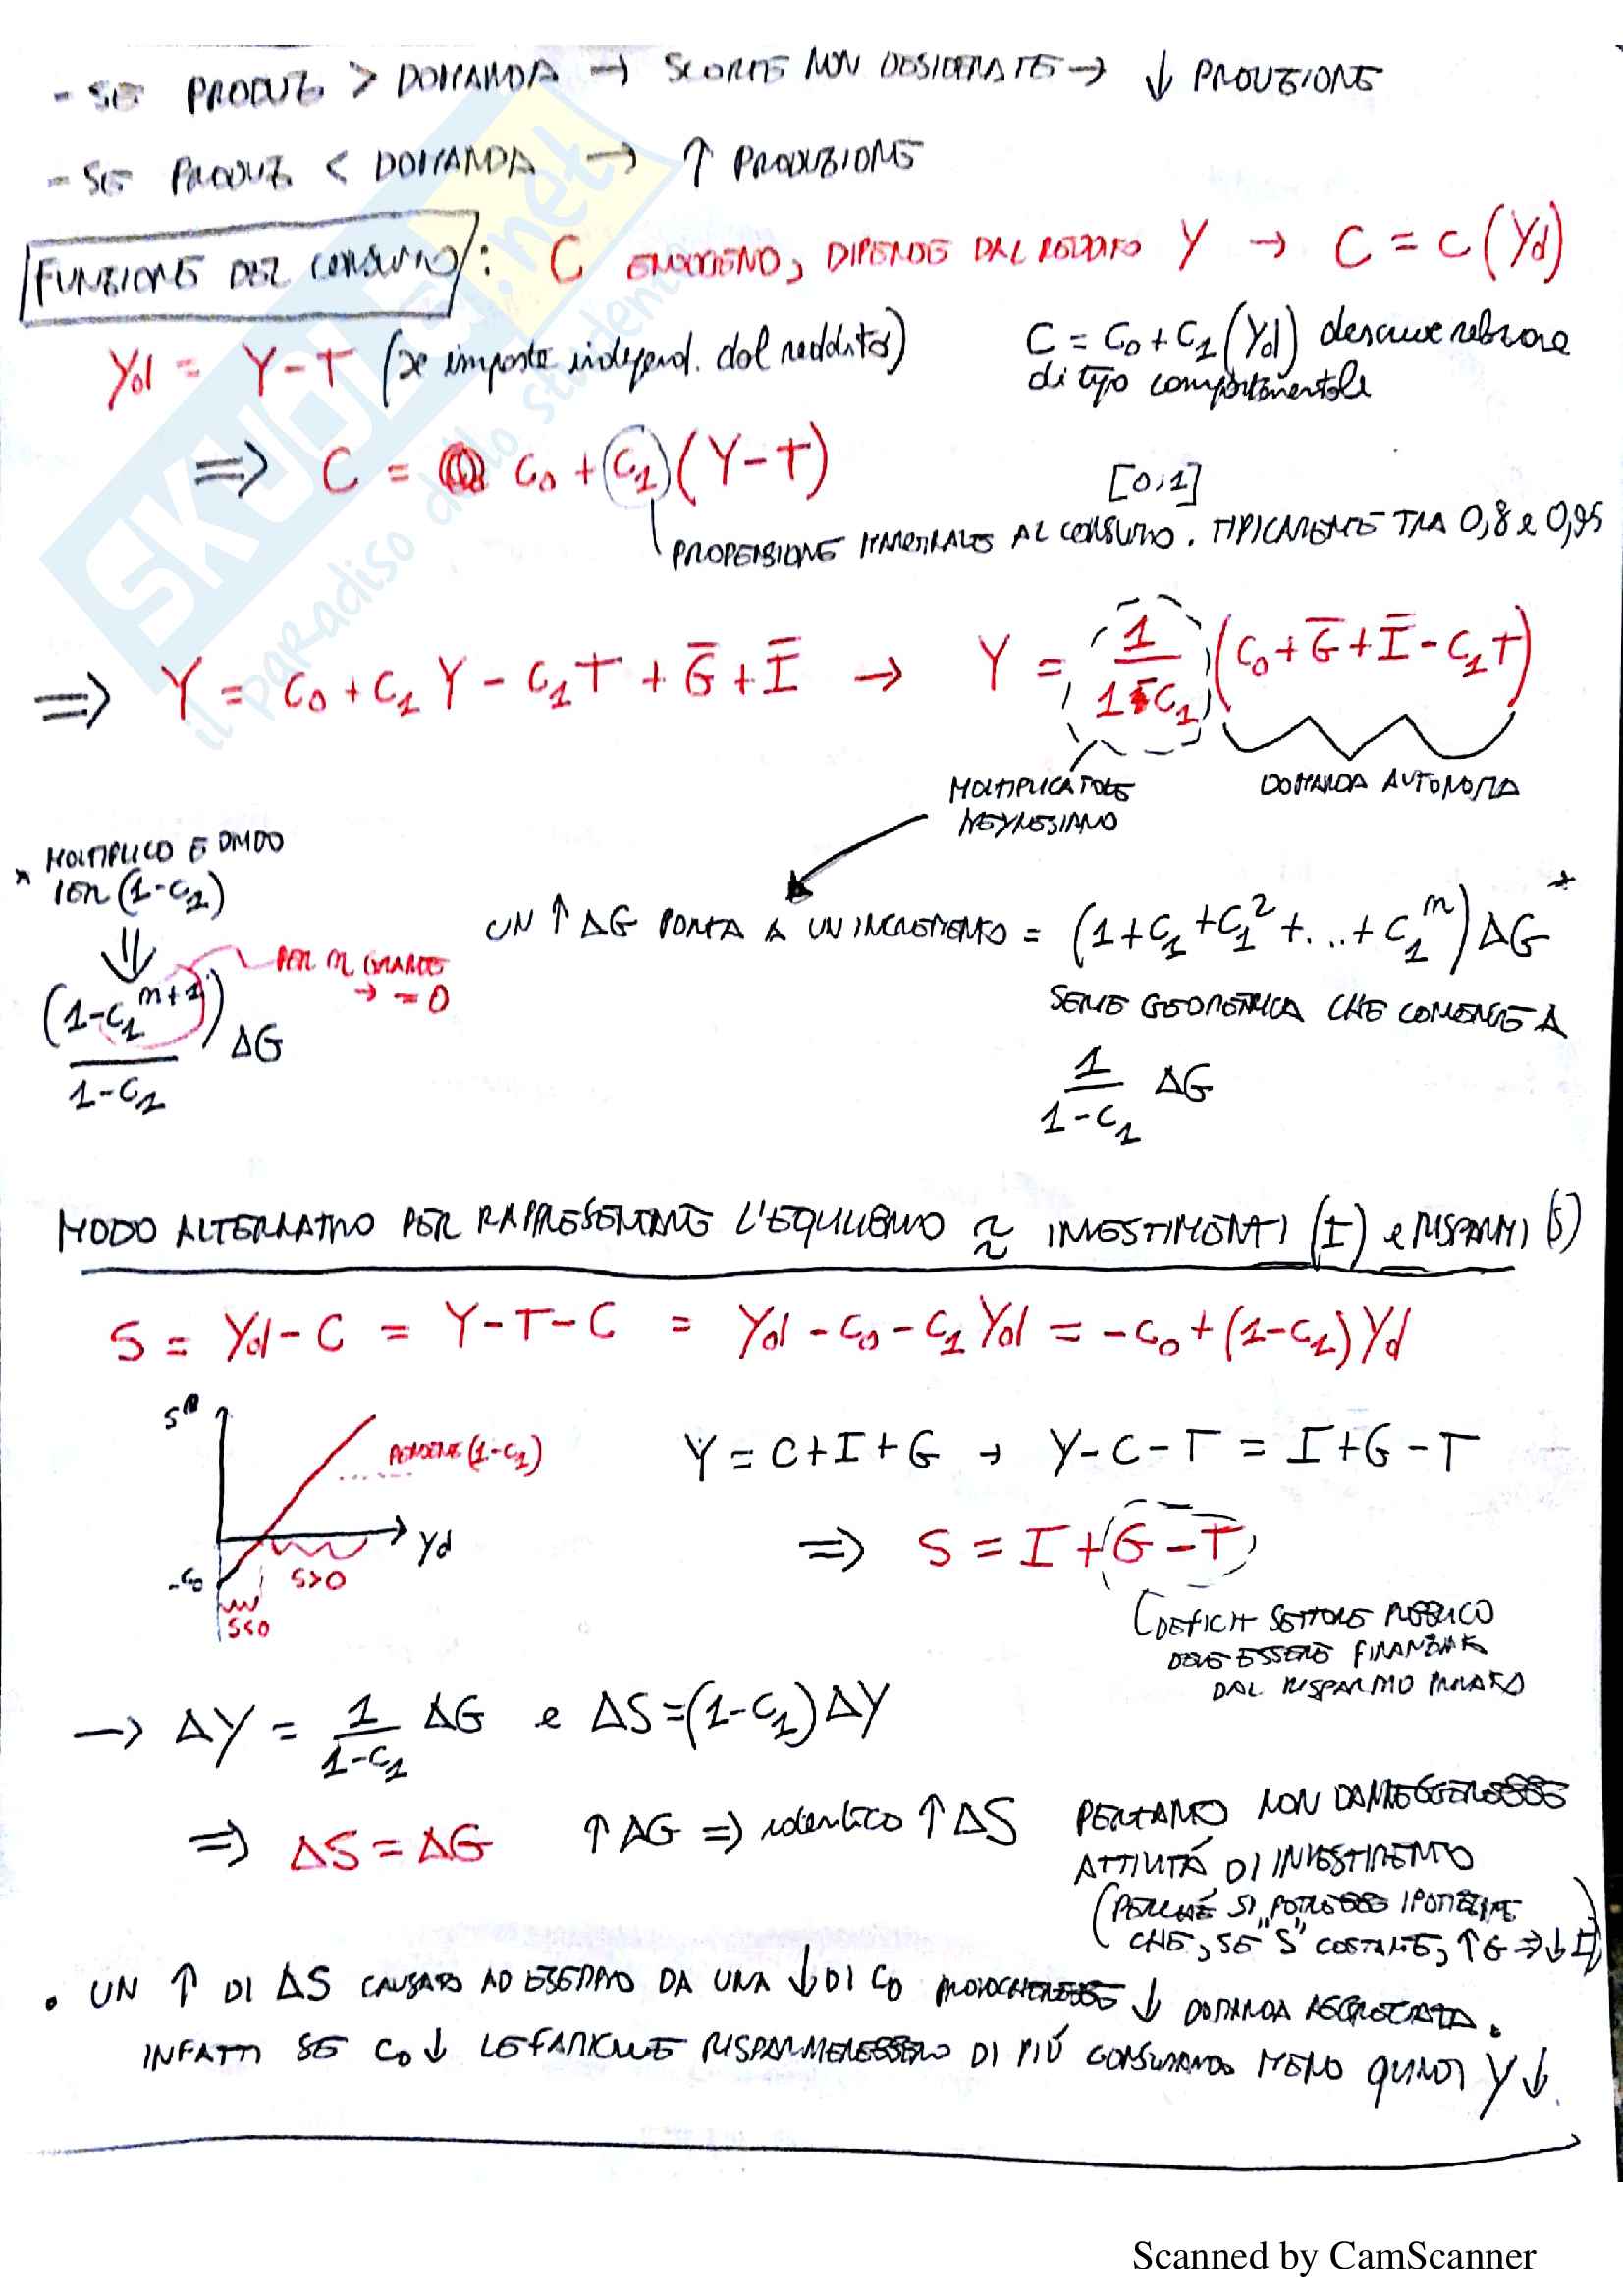 - SE PRODUZ > DOMANDA → SCORTE NON DESIDERATE → ↓ PRODUZIONE
- SE PRODUZ < DOMANDA → ↑ PRODUZIONE
FUNZIONE DEL CONSUMO : C ENDOGENO, DIPENDE DAL REDDITO Y → C = C(Yd)
Yd = Y-T (se imposte independ. dal reddito)
C = C₀ + C₁(Yd) descrive relazione
di tipo comportamentale
⇒ C = C₀ + C₁ (Y-T)
[0,1]
PROPENSIONE MARGINALE AL CONSUMO. TIPICAMENTE TRA 0,8 e 0,95
⇒ Y = C₀ + C₁Y - C₁T + Ḡ + Ī → Y = 1/(1-C₁) (C₀ + Ḡ + Ī - C₁T)
MOLTIPLICATORE
KEYNESIANO
DOMANDA AUTONOMA
* MOLTIPLICO E DIVIDO
PER (1-C₁)
⇓
PER n GRANDE
→ = 0
(1-C₁ⁿ⁺¹)/(1-C₁) ΔG
UN ↑ ΔG PORTA A UN INCREMENTO = (1+C₁+C₁²+...+C₁ⁿ) ΔG *
SERIE GEOMETRICA CHE CONVERGE A
1/(1-C₁) ΔG
MODO ALTERNATIVO PER RAPPRESENTARE L'EQUILIBRIO ≈ INVESTIMENTI (I) e RISPARMI (S)
S = Yd - C = Y-T-C = Yd - C₀ - C₁Yd = -C₀ + (1-C₁)Yd
S
PENDENZA (1-C₁)
Yd
-C₀
S>0
S<0
Y = C+I+G → Y-C-T = I+G-T
⇒ S = I + (G-T)
DEFICIT SETTORE PUBBLICO
DEVE ESSERE FINANZIATO
DAL RISPARMIO PRIVATO
→ ΔY = 1/(1-C₁) ΔG e ΔS = (1-C₁) ΔY
⇒ ΔS = ΔG ↑ ΔG ⇒ identico ↑ ΔS PERTANTO NON DANNEGGEREBBE
ATTIVITÁ DI INVESTIMENTO
(PERCHÉ SI POTREBBE IPOTIZZARE
CHE, SE "S" COSTANTE, ↑ G ⇒ ↓ I)
• UN ↑ DI ΔS CAUSATO AD ESEMPIO DA UNA ↓ DI C₀ PROVOCHEREBBE ↓ DOMANDA AGGREGATA.
INFATTI SE C₀ ↓ LE FAMIGLIE RISPARMIEREBBERO DI PIÚ CONSUMANDO MENO QUINDI Y ↓.
SKUOLA.net
il paradiso dello studente
Scanned by CamScanner